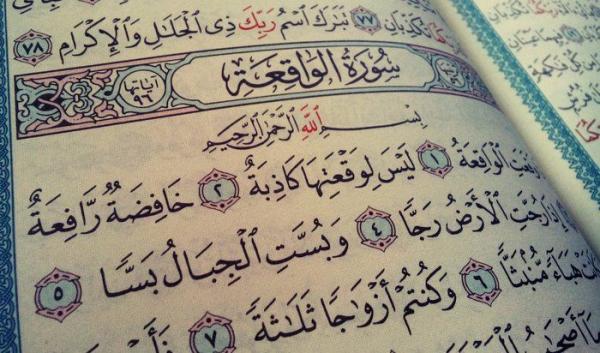 تُكَذِّبَانِ ٧٧ تَبَٰرَكَ ٱسْمُ رَبِّكَ ذِى ٱلْجَلَٰلِ وَٱلْإِكْرَامِ ٧٨
سُورَةُ ٱلْوَاقِعَةِ
آيَاتُهَا ٩٦
بِسْمِ ٱللَّهِ ٱلرَّحْمَٰنِ ٱلرَّحِيمِ
ٱلْوَاقِعَةُ ١ لَيْسَ لِوَقْعَتِهَا كَاذِبَةٌ ٢ خَافِضَةٌ رَّافِعَةٌ
إِذَا رُجَّتِ ٱلْأَرْضُ رَجًّا ٤ وَبُسَّتِ ٱلْجِبَالُ بَسًّا ٥
هَبَآءً مُّنۢبَثًّا ٦ وَكُنتُمْ أَزْوَٰجًا ثَلَٰثَةً ٧